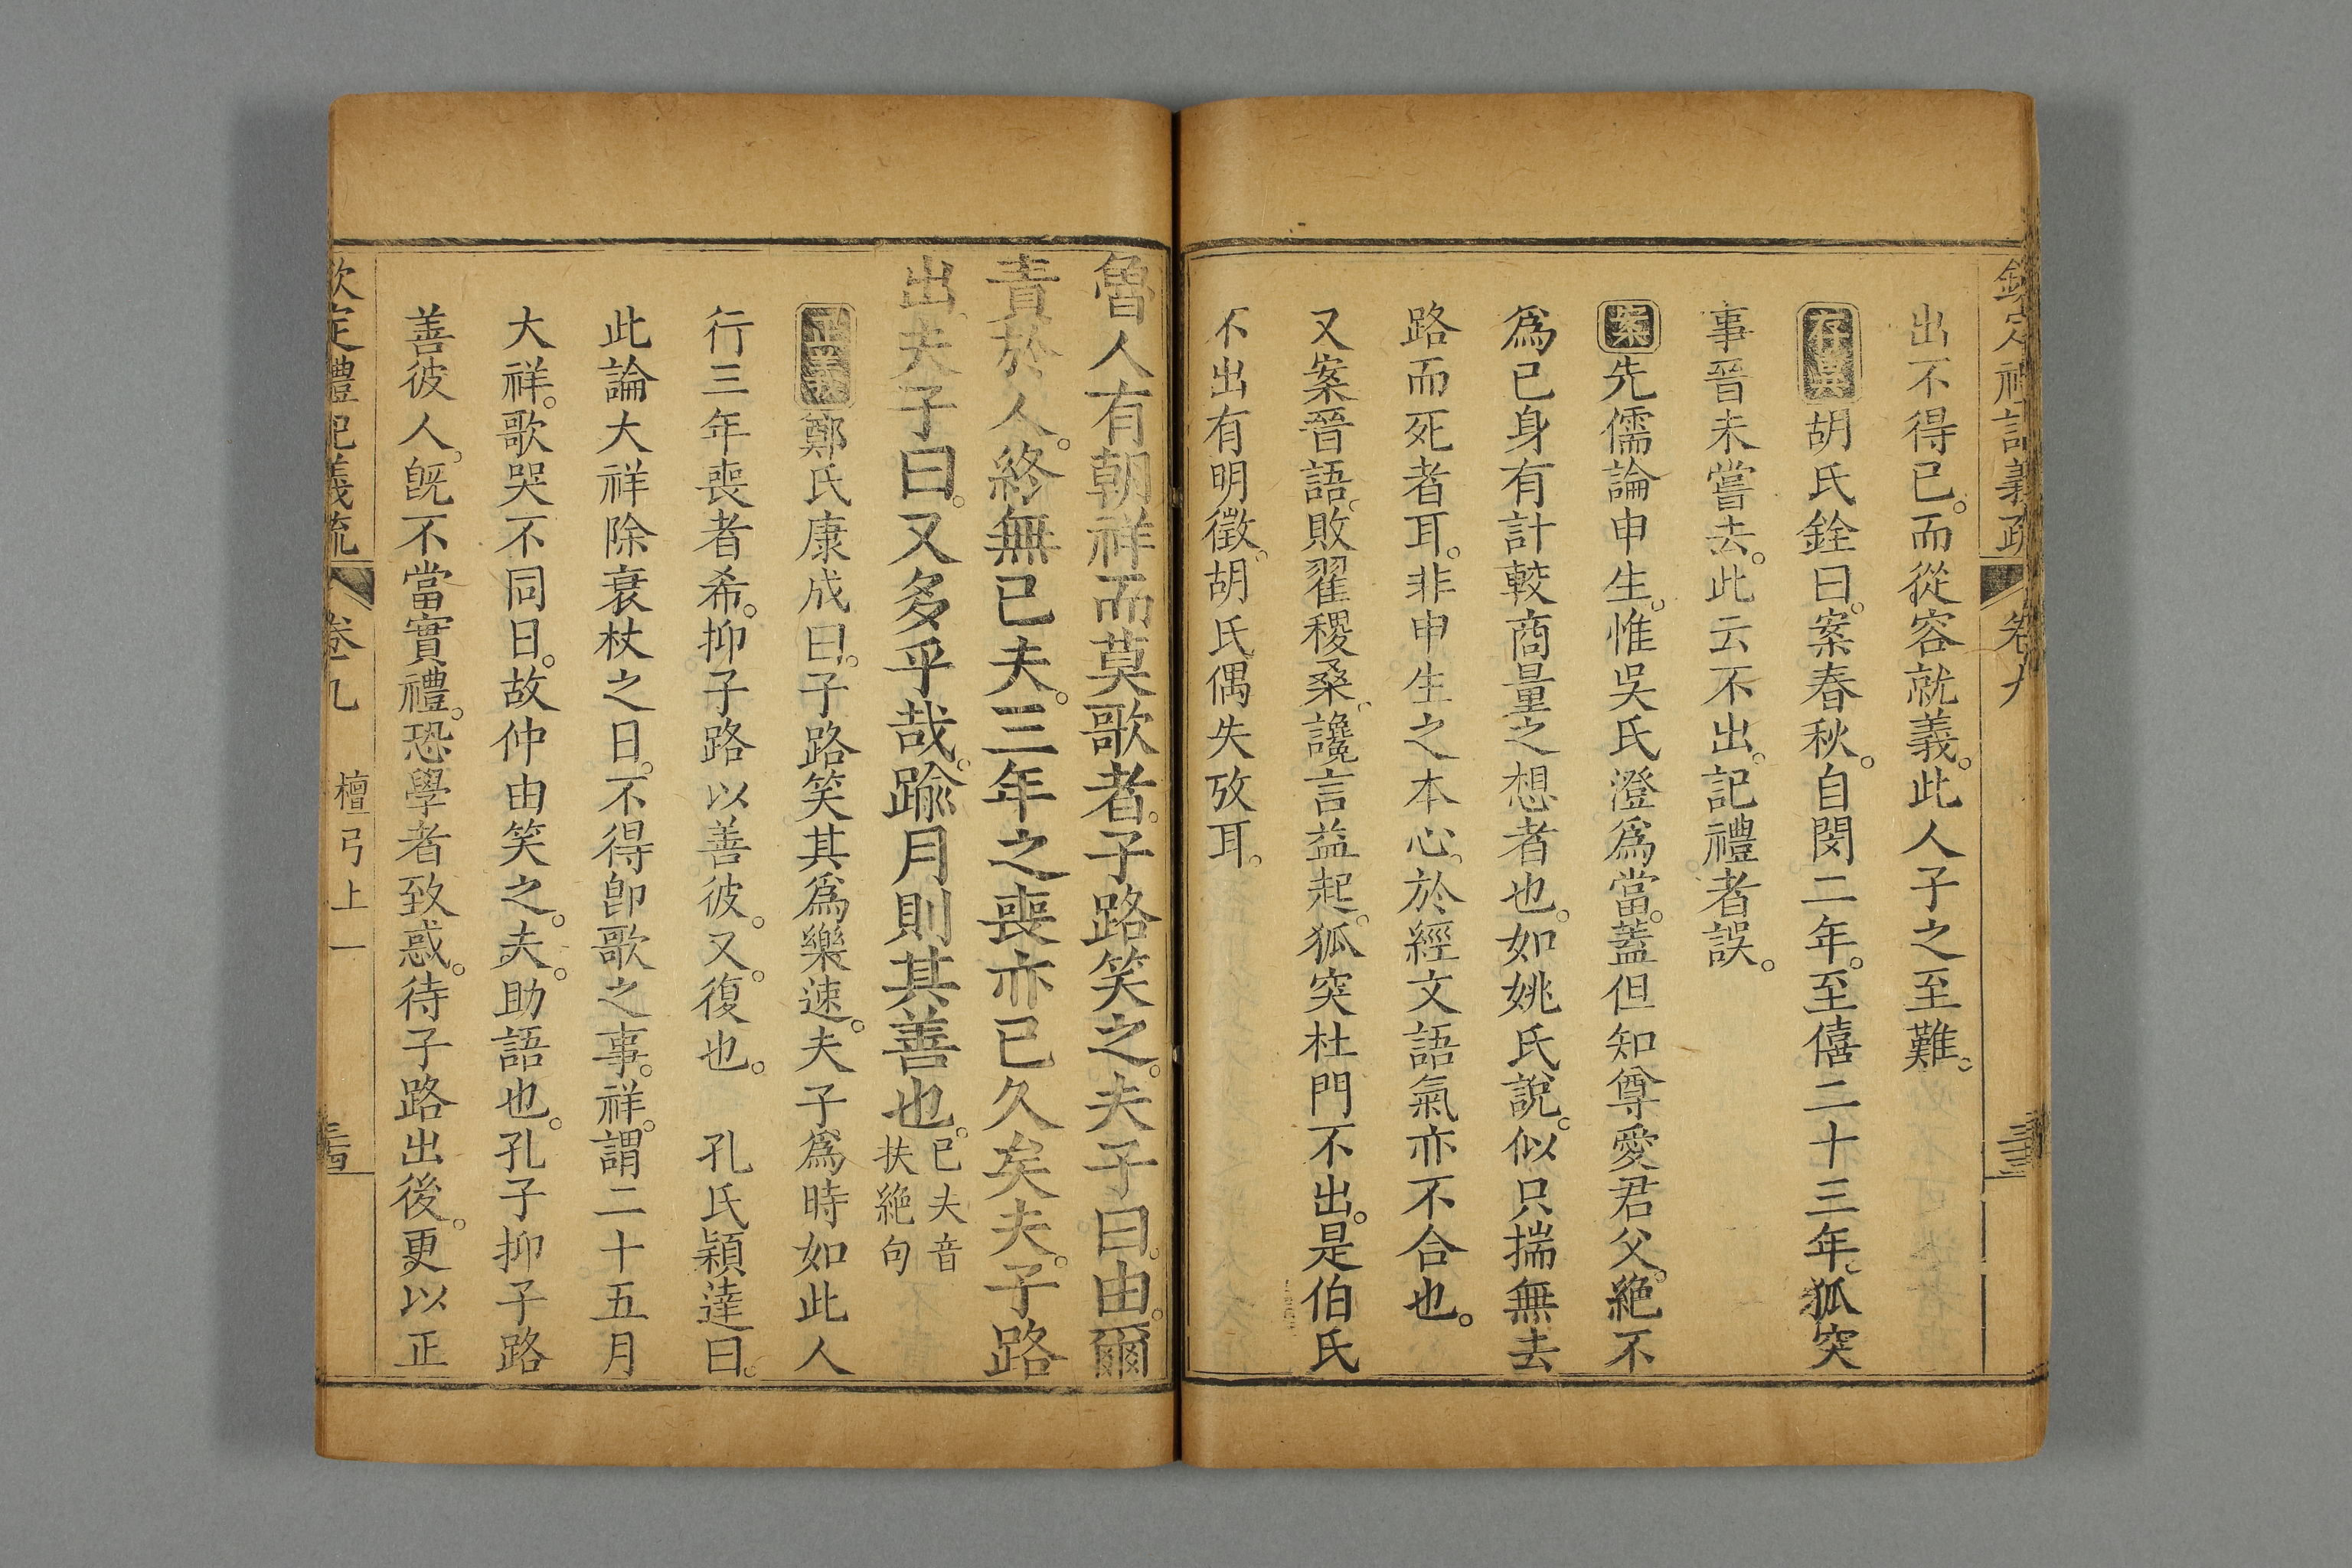 欽定禮記義疏 卷九
出不得已。而從容就義。此人子之至難。
存異 胡氏銓曰。案春秋。自閔二年。至僖二十三年。狐突
事晉未嘗去。此云不出。記禮者誤。
案 先儒論申生。惟吳氏澄爲當。蓋但知尊愛君父。絕不
爲已身有計較商量之想者也。如姚氏說。似只揣無去
路而死者耳。非申生之本心。於經文語氣亦不合也。
又案晉語。敗翟稷桑。讒言益起。狐突杜門不出。是伯氏
不出有明徵。胡氏偶失攷耳。
魯人有朝祥而莫歌者。子路笑之。夫子曰。由。爾
責於人。終無已夫。三年之喪亦已久矣夫。子路
出。夫子曰。又多乎哉。踰月則其善也。已夫音
扶絕句
正義 鄭氏康成曰。子路笑其爲樂速。夫子爲時如此人
行三年喪者希。抑子路以善彼。又。復也。 孔氏穎達曰。
此論大祥除衰杖之日。不得卽歌之事。祥。謂二十五月
大祥。歌哭不同日。故仲由笑之。夫。助語也。孔子抑子路
善彼人。旣不當實禮。恐學者致惑。待子路出後。更以正
欽定禮記義疏 卷九 檀弓上一